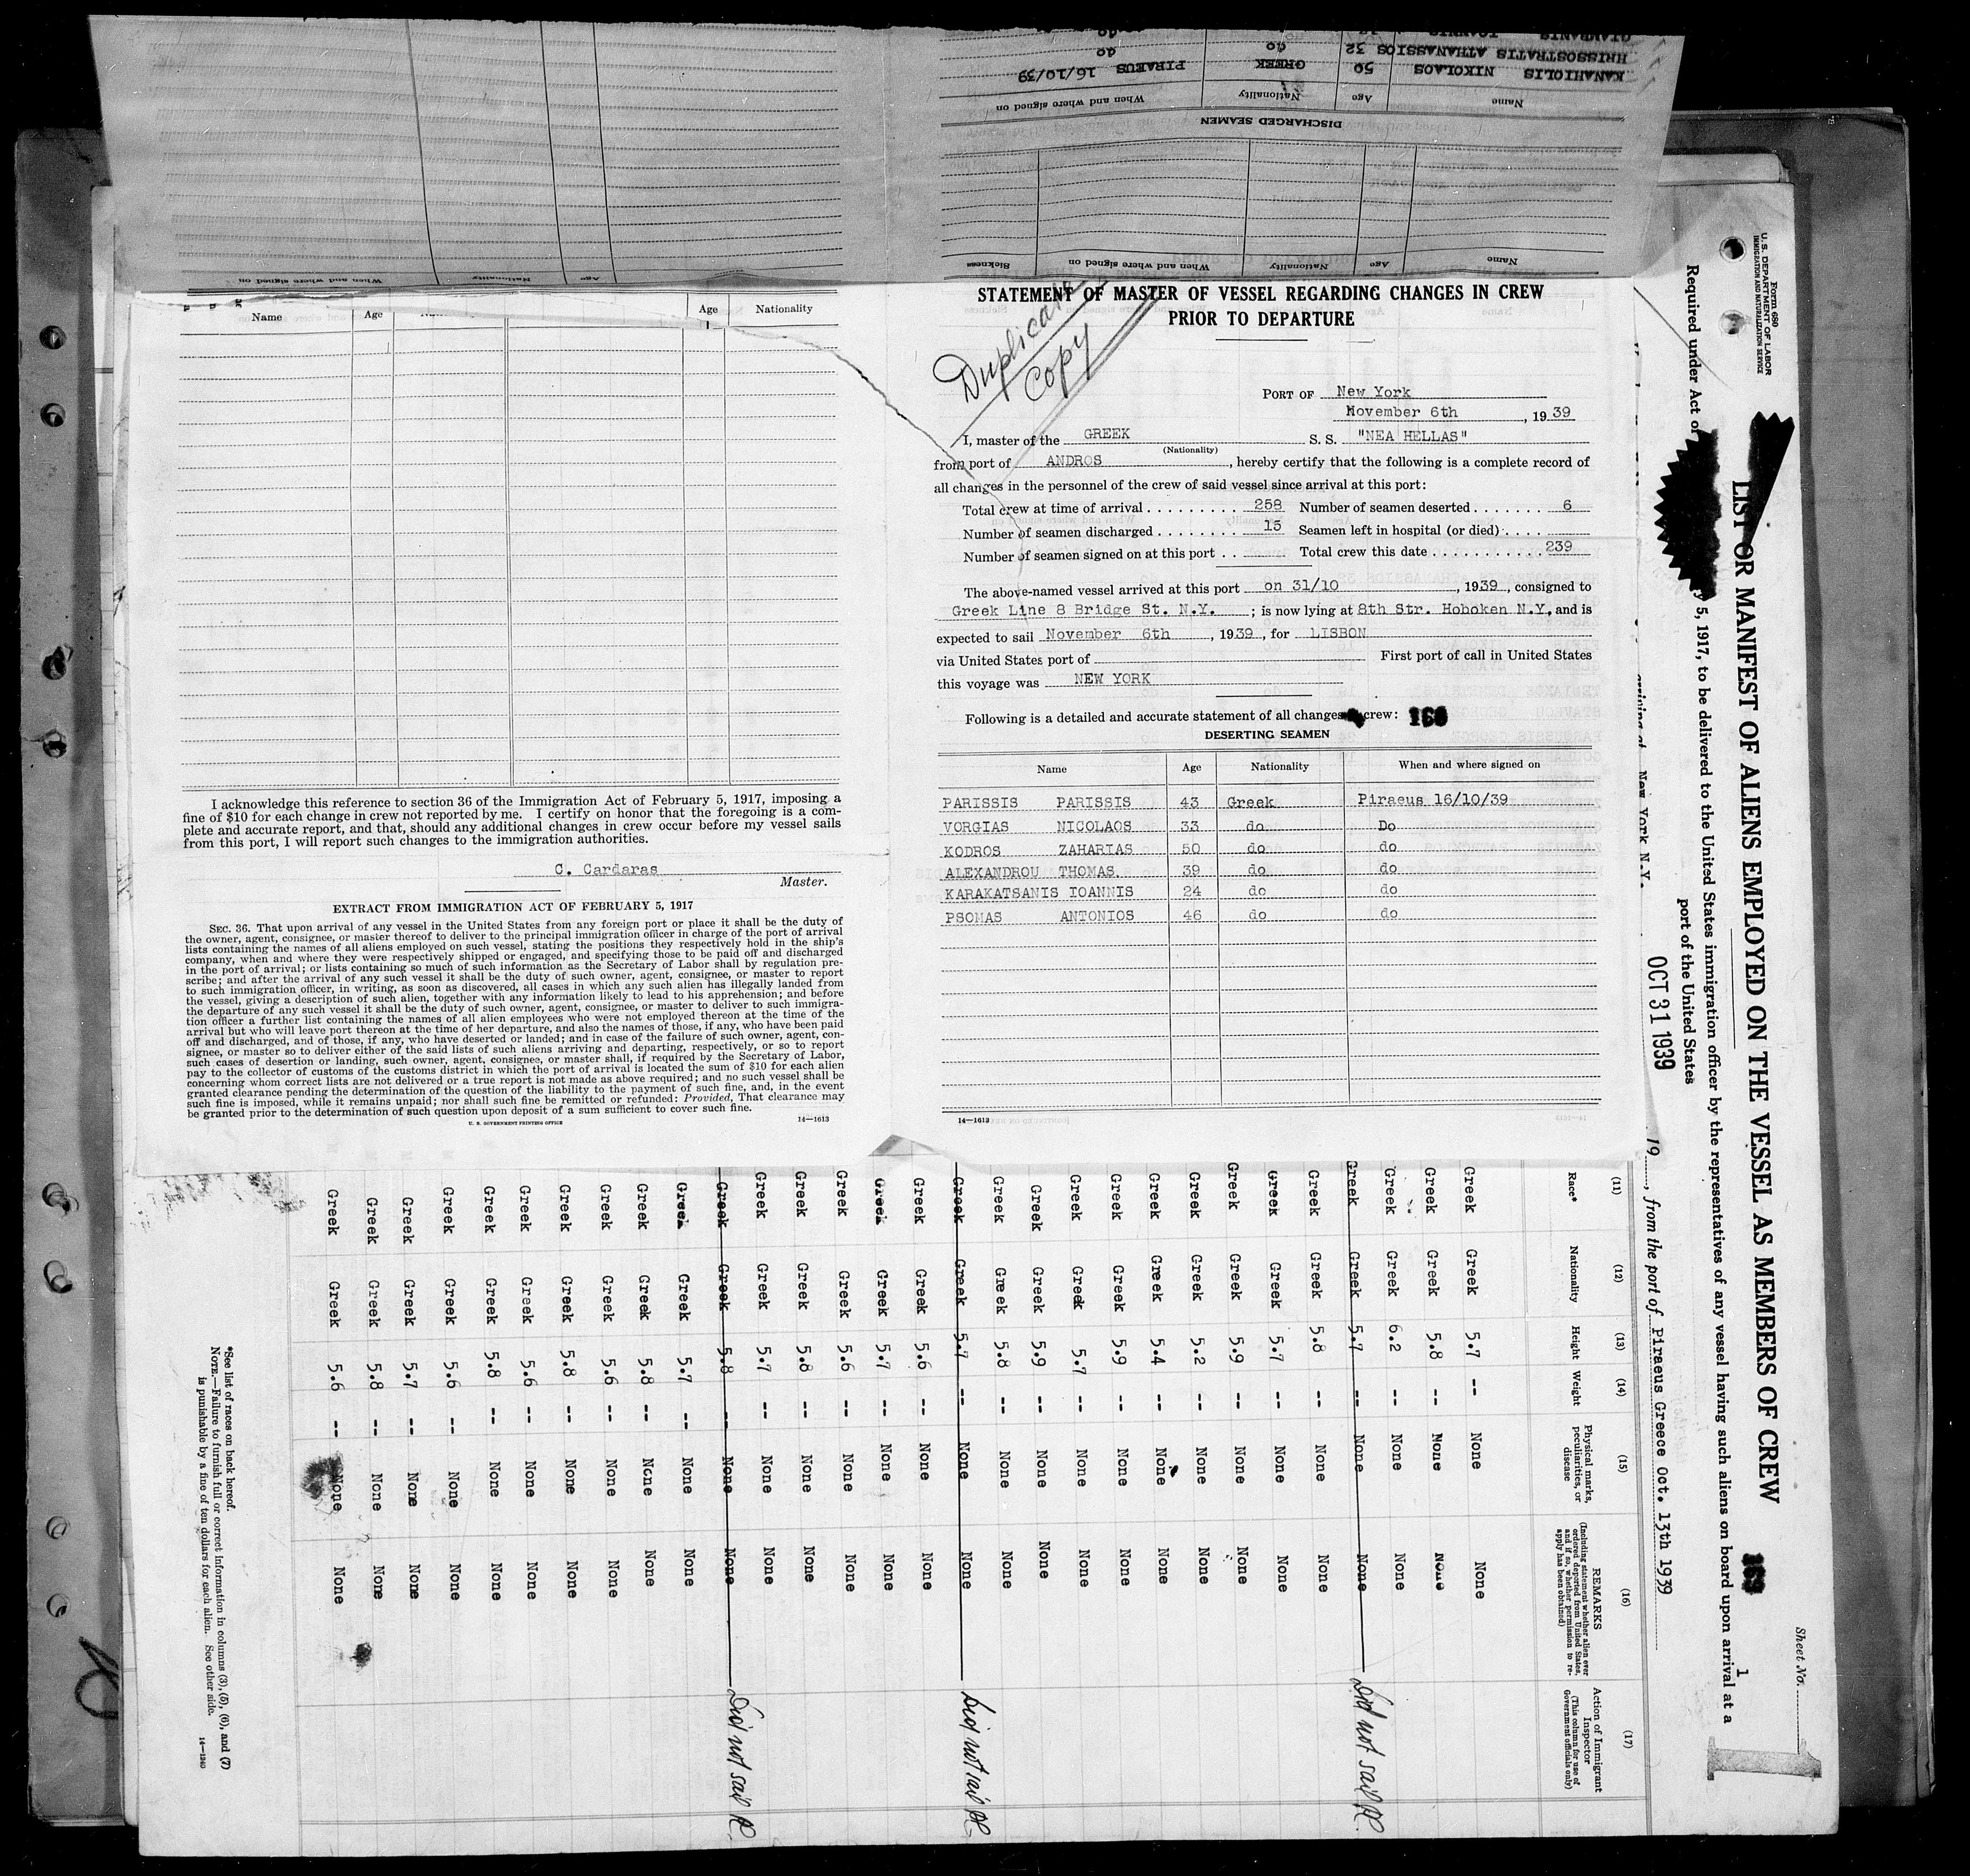 GIAMBANIS IOANNIS
HRISSOSTRATIS ATHANASSIOS 32 do do
KANARIOLIS NIKOLAOS 50 GREEK PIRAEUS 16/10/39
Name Age Nationality When and where signed on
DISCHARGED SEAMEN
Name Age Nationality When and where signed on Sickness
Age Nationality When and where signed on
Name Age Age Nationality
I acknowledge this reference to section 36 of the Immigration Act of February 5, 1917, imposing a
fine of $10 for each change in crew not reported by me. I certify on honor that the foregoing is a com-
plete and accurate report, and that, should any additional changes in crew occur before my vessel sails
from this port, I will report such changes to the immigration authorities.
C. Cardaras
Master.
EXTRACT FROM IMMIGRATION ACT OF FEBRUARY 5, 1917
SEC. 36. That upon arrival of any vessel in the United States from any foreign port or place it shall be the duty of
the owner, agent, consignee, or master thereof to deliver to the principal immigration officer in charge of the port of arrival
lists containing the names of all aliens employed on such vessel, stating the positions they respectively hold in the ship's
company, when and where they were respectively shipped or engaged, and specifying those to be paid off and discharged
in the port of arrival; or lists containing so much of such information as the Secretary of Labor shall by regulation pre-
scribe; and after the arrival of any such vessel it shall be the duty of such owner, agent, consignee, or master to report
to such immigration officer, in writing, as soon as discovered, all cases in which any such alien has illegally landed from
the vessel, giving a description of such alien, together with any information likely to lead to his apprehension; and before
the departure of any such vessel it shall be the duty of such owner, agent, consignee, or master to deliver to such immigra-
tion officer a further list containing the names of all alien employees who were not employed thereon at the time of the
arrival but who will leave port thereon at the time of her departure, and also the names of those, if any, who have been paid
off and discharged, and of those, if any, who have deserted or landed; and in case of the failure of such owner, agent, con-
signee, or master so to deliver either of the said lists of such aliens arriving and departing, respectively, or so to report
such cases of desertion or landing, such owner, agent, consignee, or master shall, if required by the Secretary of Labor,
pay to the collector of customs of the customs district in which the port of arrival is located the sum of $10 for each alien
concerning whom correct lists are not delivered or a true report is not made as above required; and no such vessel shall be
granted clearance pending the determination of the question of the liability to the payment of such fine, and, in the event
such fine is imposed, while it remains unpaid; nor shall such fine be remitted or refunded: Provided, That clearance may
be granted prior to the determination of such question upon deposit of a sum sufficient to cover such fine.
U. S. GOVERNMENT PRINTING OFFICE 14—1613
STATEMENT OF MASTER OF VESSEL REGARDING CHANGES IN CREW
PRIOR TO DEPARTURE
Duplicate
Copy
PORT OF New York
November 6th, 1939
I, master of the GREEK S. S. "NEA HELLAS"
(Nationality)
from port of ANDROS, hereby certify that the following is a complete record of
all changes in the personnel of the crew of said vessel since arrival at this port:
Total crew at time of arrival 258 Number of seamen deserted 6
Number of seamen discharged 15 Seamen left in hospital (or died)
Number of seamen signed on at this port Total crew this date 239
The above-named vessel arrived at this port on 31/10, 1939, consigned to
Greek Line 8 Bridge St. N.Y. ; is now lying at 8th Str. Hoboken N.Y, and is
expected to sail November 6th, 1939, for LISBON
via United States port of First port of call in United States
this voyage was NEW YORK
Following is a detailed and accurate statement of all changes crew:
DESERTING SEAMEN
Name Age Nationality When and where signed on
PARISSIS PARISSIS 43 Greek Piraeus 16/10/39
VORGIAS NICOLAOS 33 do Do
KODROS ZAHARIAS 50 do do
ALEXANDROU THOMAS 39 do do
KARAKATSANIS IOANNIS 24 do do
PSOMAS ANTONIOS 46 do do
14—1613
Sheet No.
1
Form 680
U. S. DEPARTMENT OF LABOR
IMMIGRATION AND NATURALIZATION SERVICE
LIST OR MANIFEST OF ALIENS EMPLOYED ON THE VESSEL AS MEMBERS OF CREW
Required under Act of 5, 1917, to be delivered to the United States immigration officer by the representatives of any vessel having such aliens on board upon arrival at a
port of the United States
arriving at New York N.Y. OCT 31 1939 19, from the port of Piraeus Greece Oct. 13th 1939
(11) (12) (13) (14) (15) (16) (17)
Race* Nationality Height Weight Physical marks, peculiarities, or disease REMARKS (Including statement whether alien ever ordered deported from United States, and if so, whether permission to re-apply has been obtained) Action of Immigrant Inspector (This column for use of Government officials only)
Greek Greek 5.7 -- None None
Greek Greek 5.8 -- None None
Greek Greek 6.2 -- None None
Greek Greek 5.7 -- None None Did not sail
Greek Greek 5.8 -- None None
Greek Greek 5.7 -- None None
Greek Greek 5.9 -- None None
Greek Greek 5.2 -- None None
Greek Greek 5.4 -- None None
Greek Greek 5.9 -- None None
Greek Greek 5.7 -- None None
Greek Greek 5.9 -- None None
Greek Greek 5.8 -- None None
Greek Greek 5.7 -- None None Did not sail
Greek Greek 5.6 -- None None
Greek Greek 5.7 -- None None
Greek Greek 5.6 -- None None
Greek Greek 5.8 -- None None
Greek Greek 5.7 -- None None
Greek Greek 5.8 -- None None Did not sail
Greek Greek 5.7 -- None None
Greek Greek 5.8 -- None None
Greek Greek 5.6 -- None None
Greek Greek 5.8 -- None None
Greek Greek 5.6 -- None None
Greek Greek 5.8 -- None None
Greek Greek 5.6 -- None None
Greek Greek 5.7 -- None None
Greek Greek 5.8 -- None None
Greek Greek 5.6 -- None None
*See list of races on back hereof.
NOTE.—Failure to furnish full or correct information in columns (3), (5), (6), and (7)
is punishable by a fine of ten dollars for each alien. See other side. 14—1240